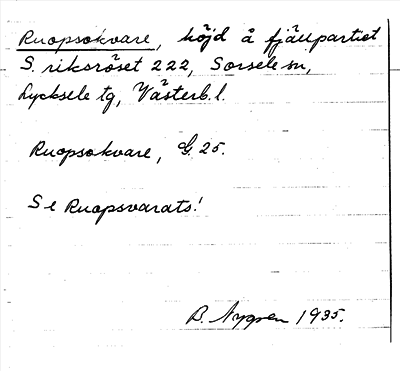 Ruopsokvare, höjd å fjällpartiet
S. riksröset 222, Sorsele sn,
Lycksele tg, Västerb. l.
Ruopsokvare, G. 25.
Se Ruopsvarats!
B. Nygren 1935.